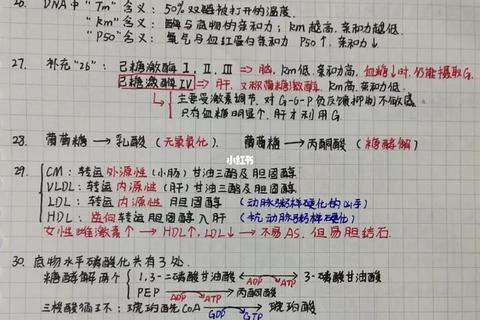 26. DNA中 "Tm" 含义：50% 双链被打开的温度.
"Km" 含义：酶与底物的亲和力；Km越高，亲和力越低.
"P50" 含义：氧气与血红蛋白亲和力 P50↑，亲和力↓
27. 补充"26"：己糖激酶 I、II、III ⇒ 脑，Km低.亲和力高，血糖↓时.仍能摄取G.
己糖激酶IV ⇒ 肝，又称葡萄糖激酶. Km高.亲和力低.
主要受激素调节. 对G-6-P负反馈抑制不敏感
只有血糖明显↑，肝才利用G
28. 葡萄糖 → 乳酸（无氧氧化）. 葡萄糖 → 丙酮酸（糖酵解）
小红书
29. CM：转运外源性（小肠）甘油三酯及胆固醇
VLDL：转运内源性（肝）甘油三酯及胆固醇
LDL：转运内源性 胆固醇（动脉粥样硬化的凶手）
HDL：逆向转运胆固醇入肝（抗动脉粥样硬化）
女性雌激素↑ → HDL↑，LDL↓ → 不易AS，但易胆结石.
30. 底物水平磷酸化共有3处.
糖酵解两个 1,3-二磷酸甘油酸 ADP ATP 3-磷酸甘油酸
PEP ADP ATP 丙酮酸
三羧酸循环：琥珀酰CoA GDP GTP 琥珀酸